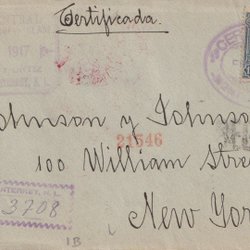 Certificada.
1917
Johnson y Johnson
21546
100 William Stre
MONTERREY, N.L.
3708
New Yor
1B